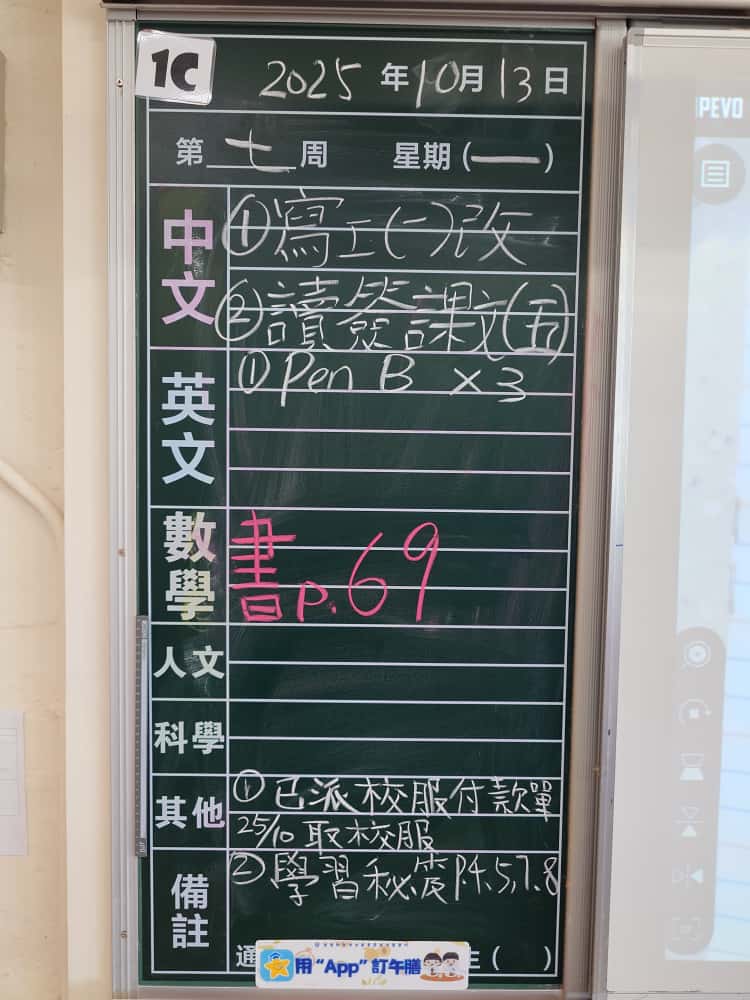 1C
2025年10月13日
第七周 星期(一)
中文
①寫工(一)改
②讀簽課文(五)
英文
① Pen B x3
數學
書 p.69
人文
科學
其他
①已派校服付款單
25/10 取校服
備註
②學習秘笈 p.4.5,7.8
通
( )
用“App”訂午膳
IPEVO